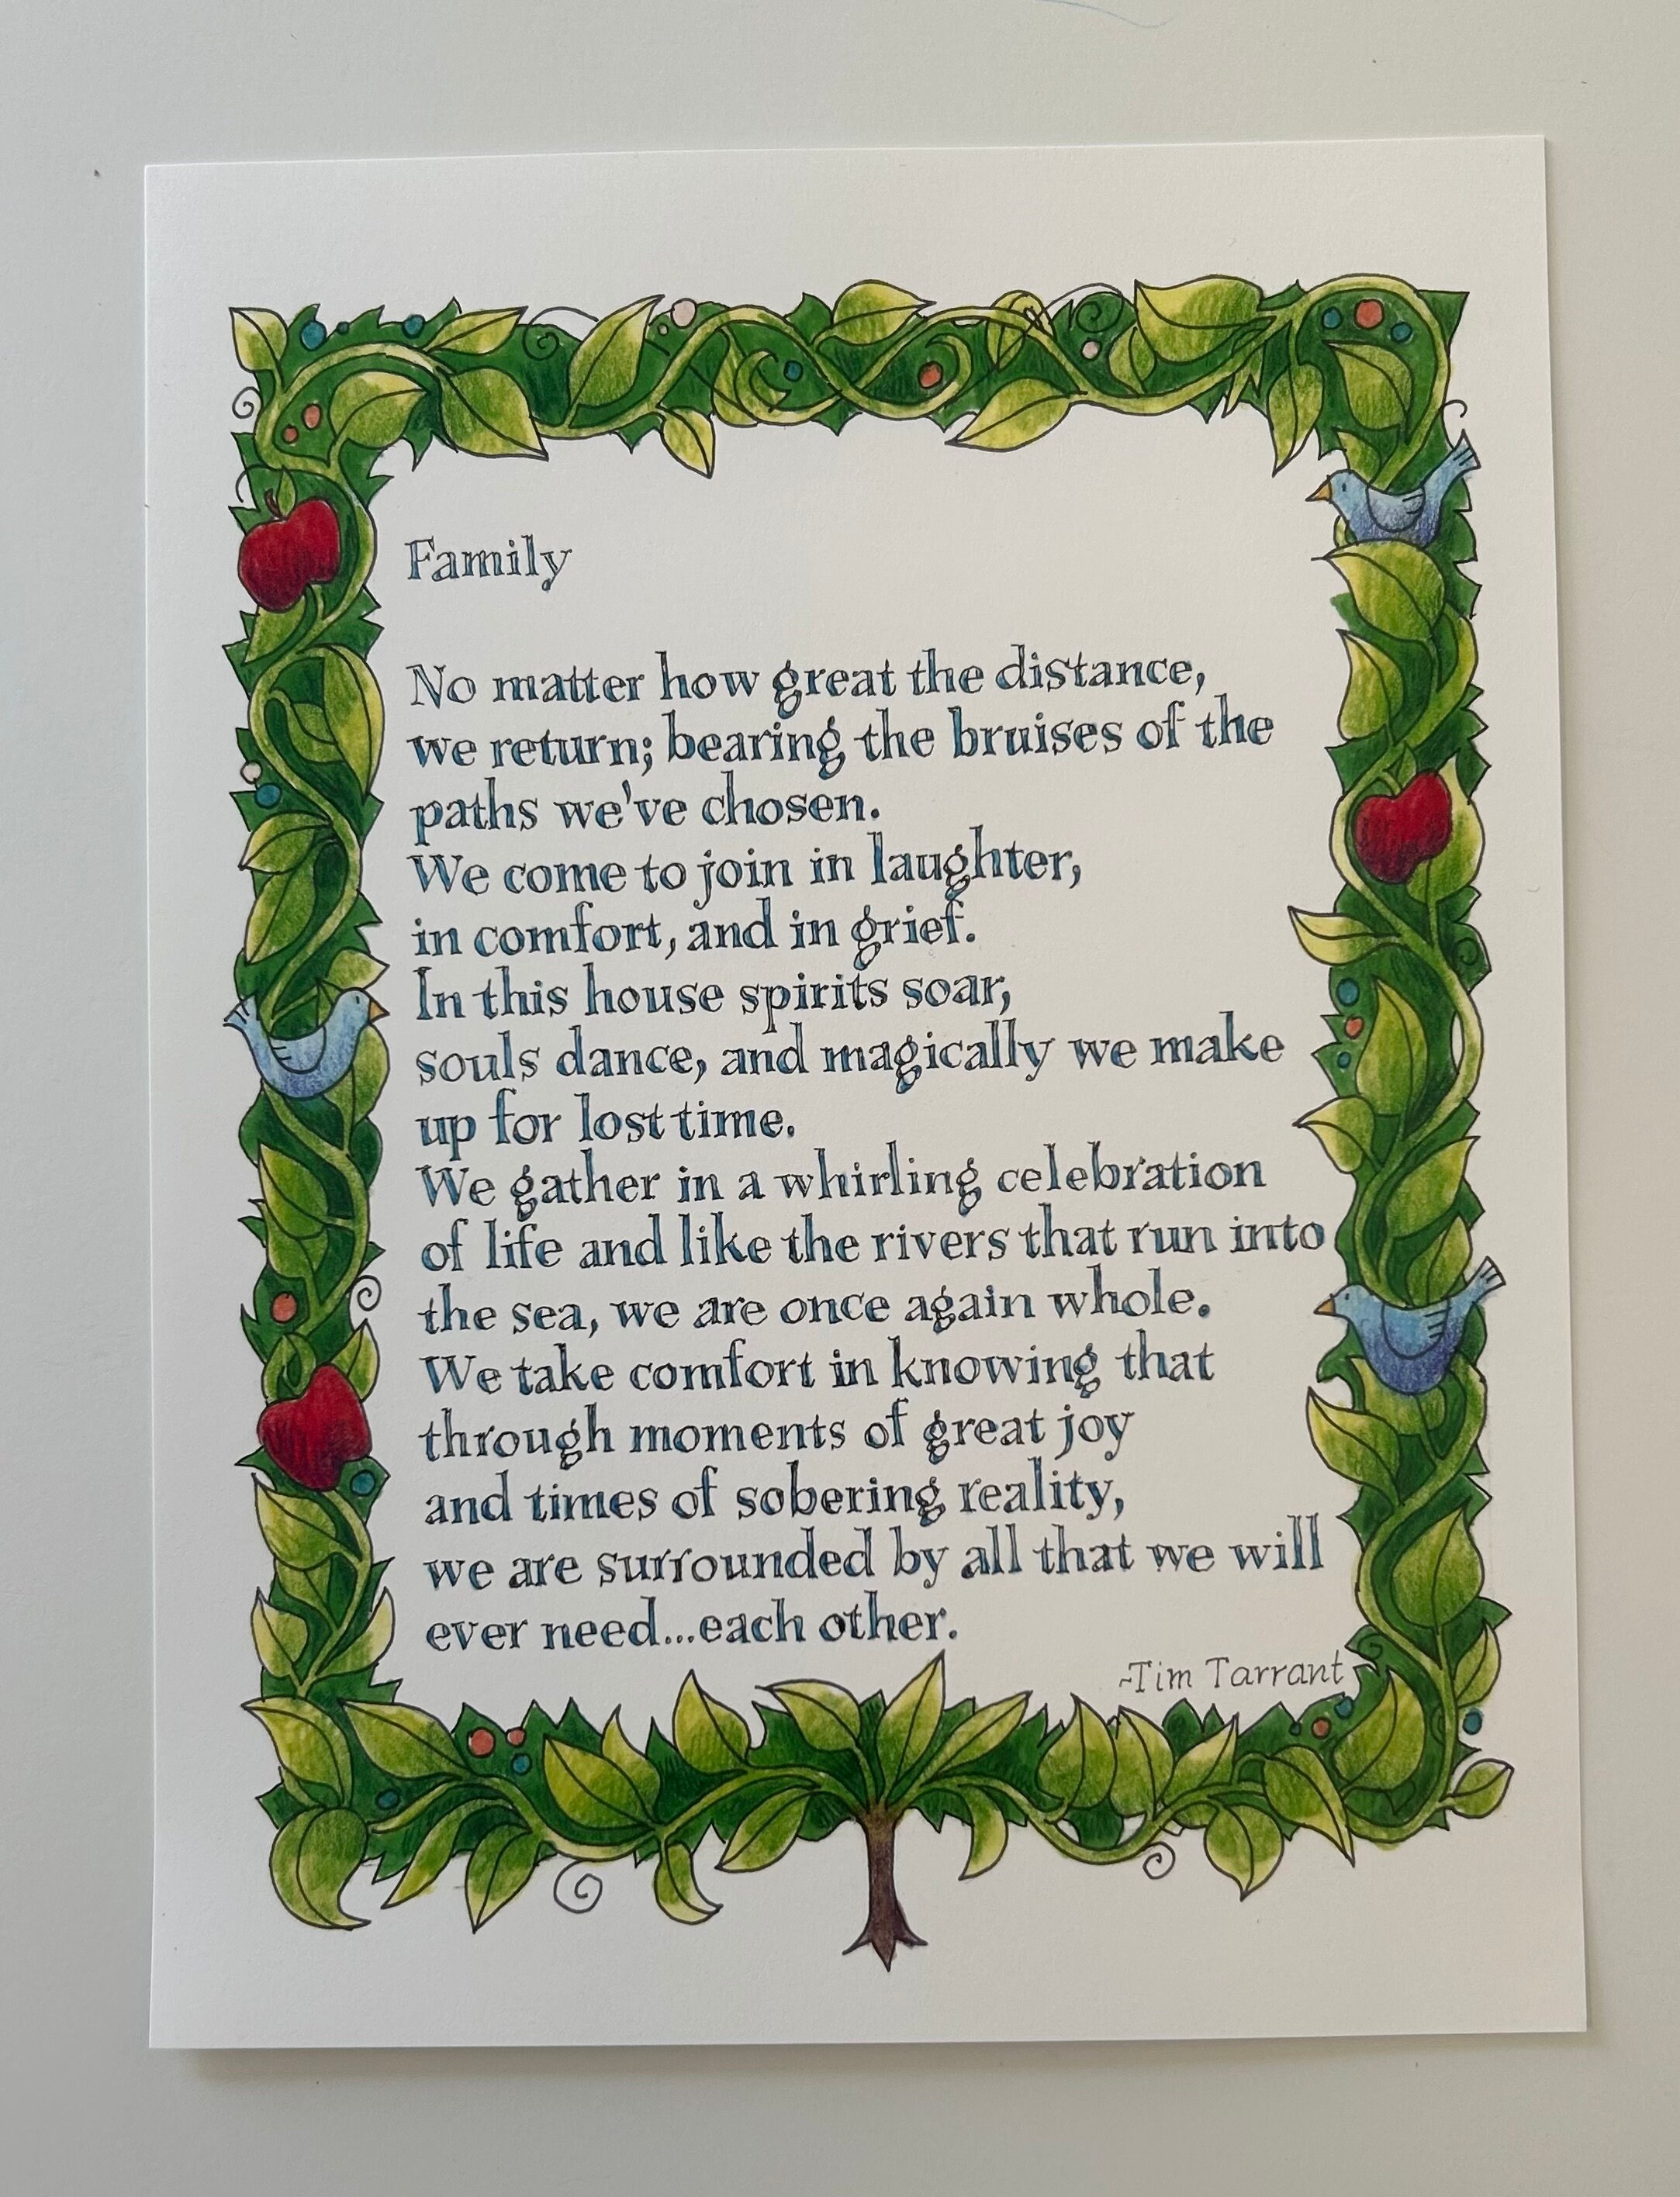 Family
No matter how great the distance,
we return; bearing the bruises of the
paths we've chosen.
We come to join in laughter,
in comfort, and in grief.
In this house spirits soar,
souls dance, and magically we make
up for lost time.
We gather in a whirling celebration
of life and like the rivers that run into
the sea, we are once again whole.
We take comfort in knowing that
through moments of great joy
and times of sobering reality,
we are surrounded by all that we will
ever need...each other.
~Tim Tarrant